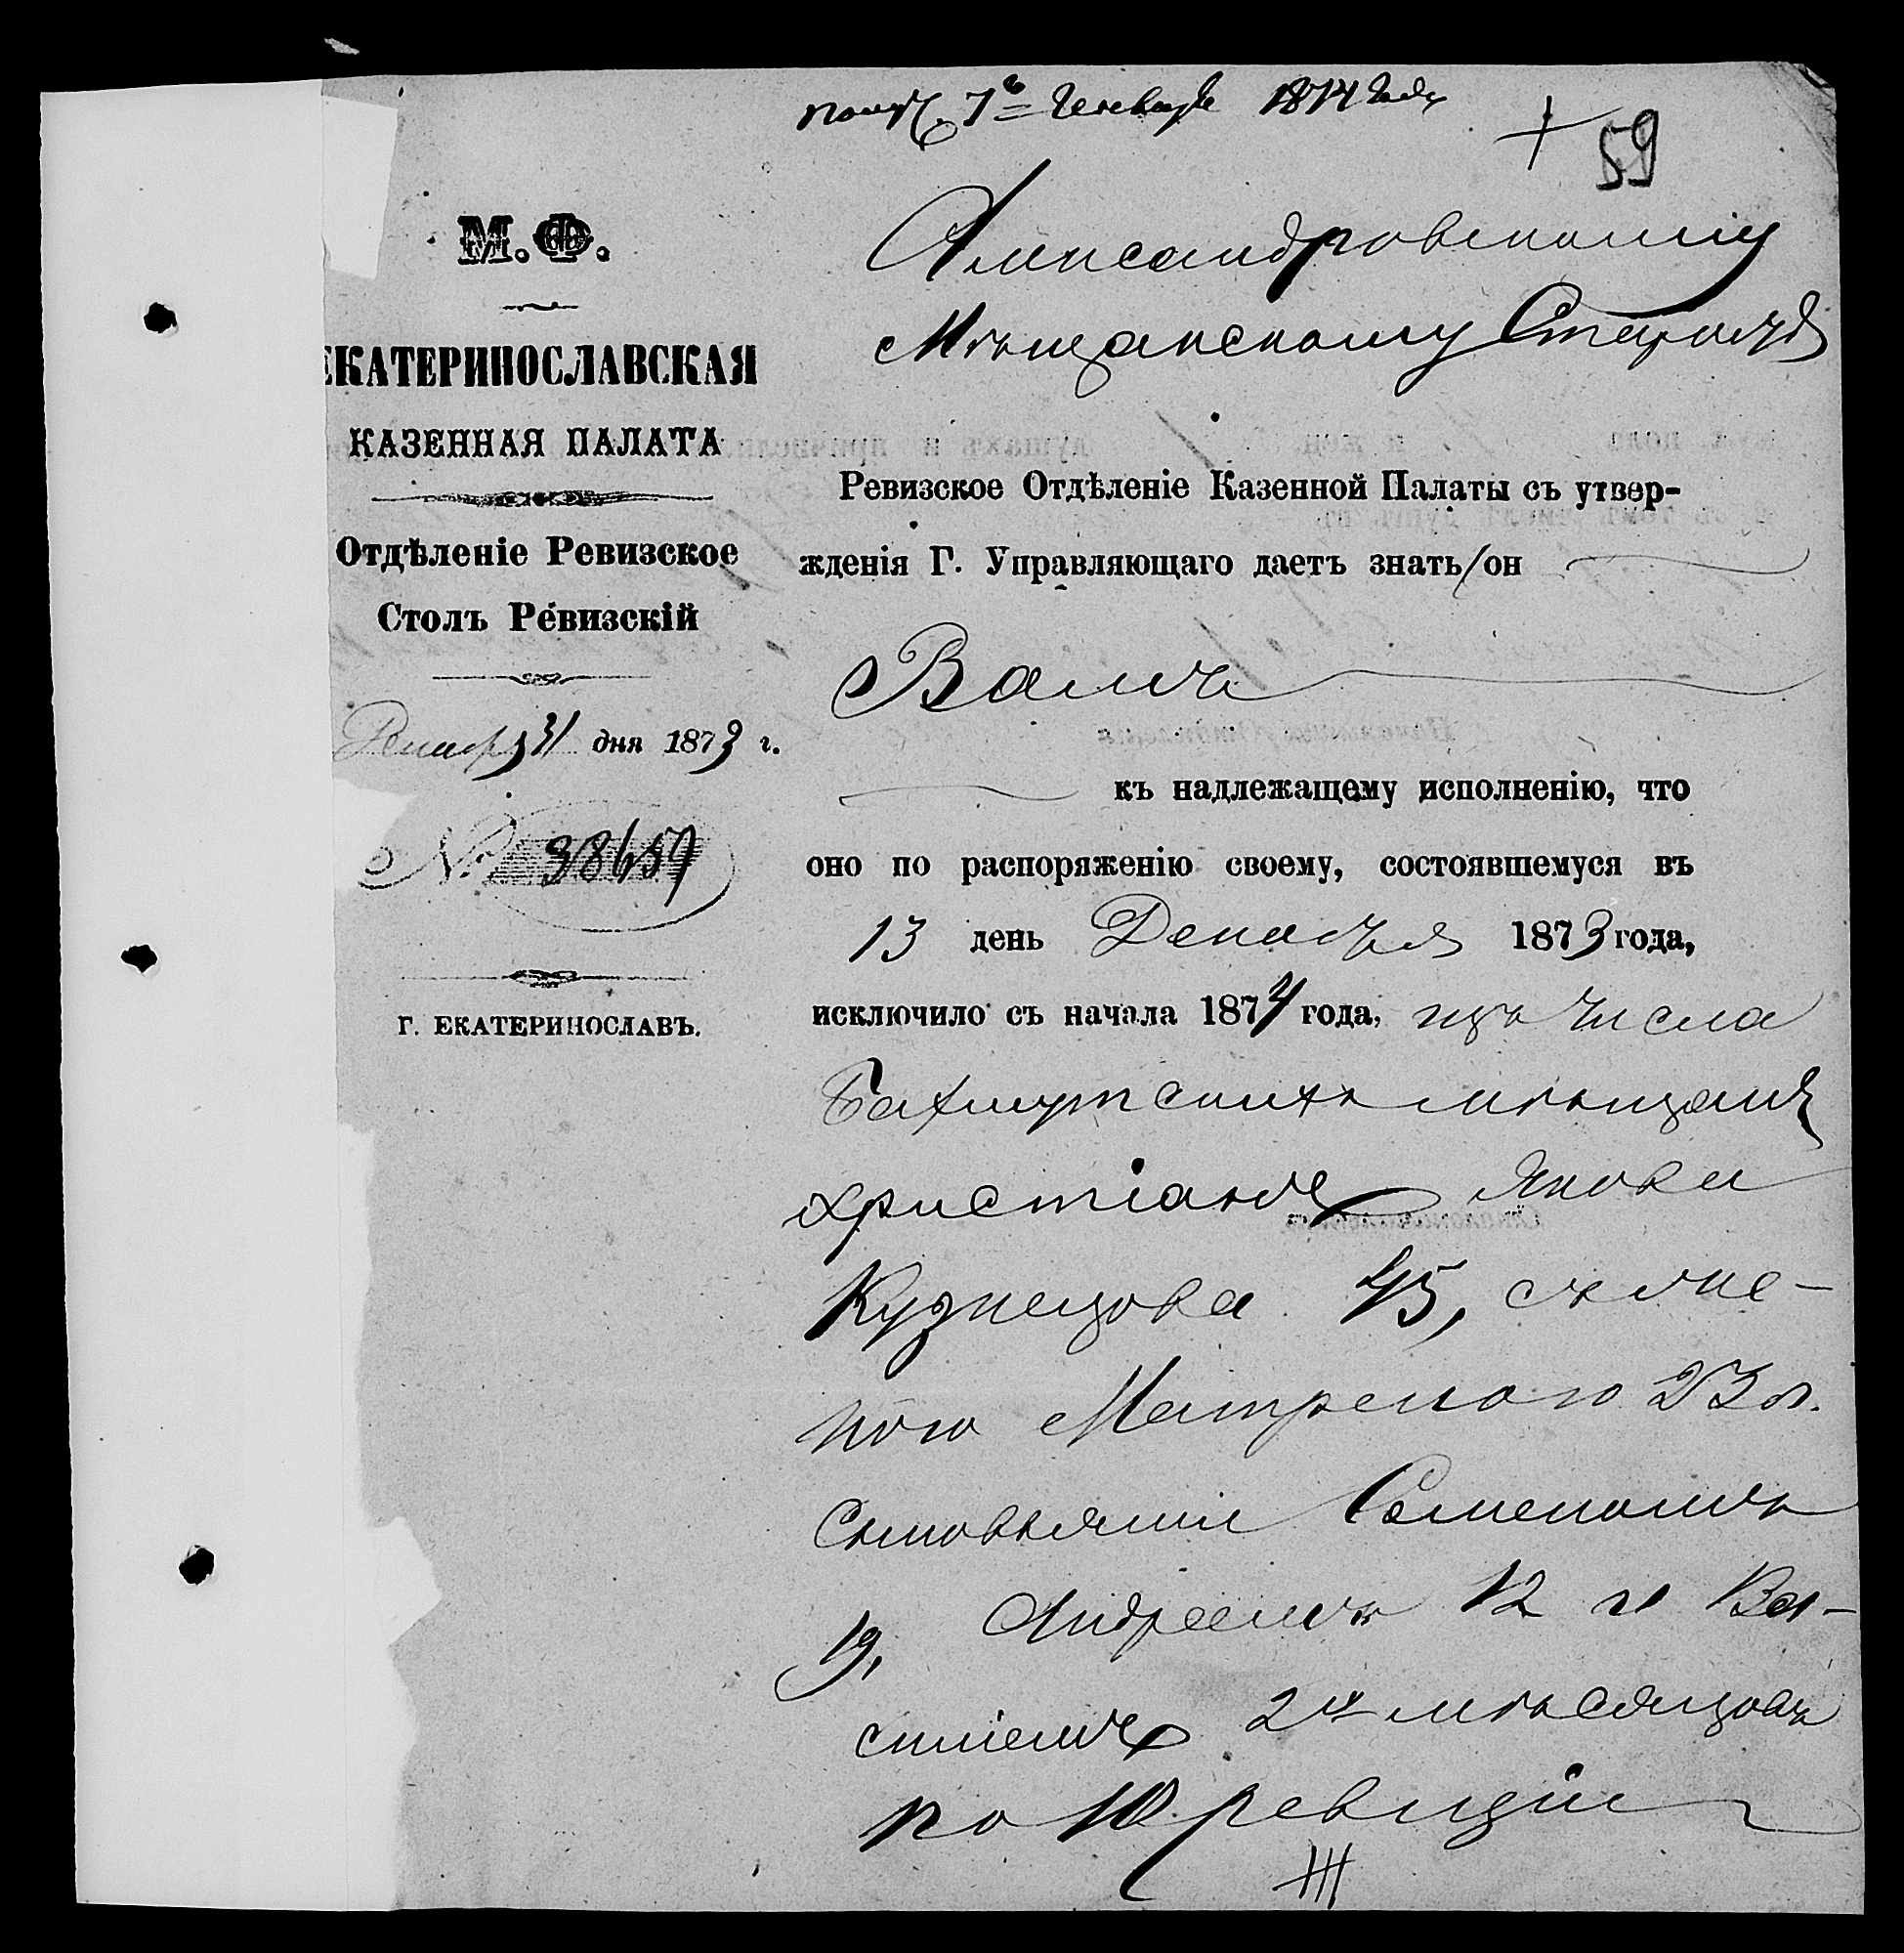 получ. 7го Генваря 1874 года
59
М.Ф.
ЕКАТЕРИНОСЛАВСКАЯ
КАЗЕННАЯ ПАЛАТА
Отдѣленіе Ревизское
Столъ Ревизскій
Декабр 31 дня 1873 г.
№ 38659
Г. ЕКАТЕРИНОСЛАВЪ.
Александровскому
Мѣщанскому Старостѣ
Ревизское Отдѣленіе Казенной Палаты съ утвер-
жденія Г. Управляющаго даетъ знать/он
Вамъ
къ надлежащему исполненію, что
оно по распоряженію своему, состоявшемуся въ
13 день Декабря 1873 года,
исключило съ начала 1874 года, изъ числа
Бахмутскихъ мѣщанъ
христіанъ Якова
Кузнецова 45, съ же-
ною Матреною 23 л.
Сыновьями Семеномъ
19, Андреемъ 12 и Ва-
силіемъ 2хъ мѣсяцовъ
по 10 ревизіи